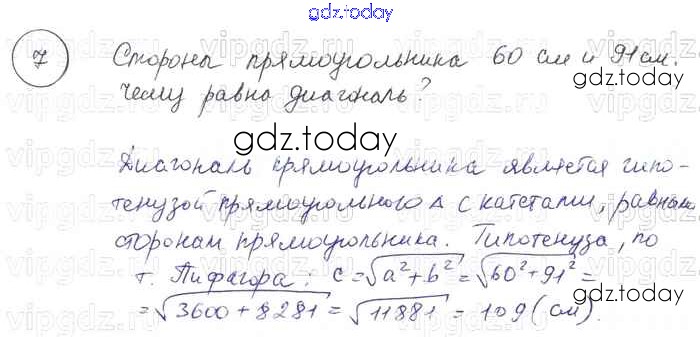 gdz.today
7 Стороны прямоугольника 60 см и 91 см.
gdz.today
Чему равна диагональ?
gdz.today
Диагональ прямоугольника является гипо-
тенузой прямоугольного Δ с катетами, равными
сторонам прямоугольника. Гипотенуза, по
т. Пифагора: c = √a² + b² = √60² + 91² =
= √3600 + 8281 = √11881 = 109 (см).
gdz.today